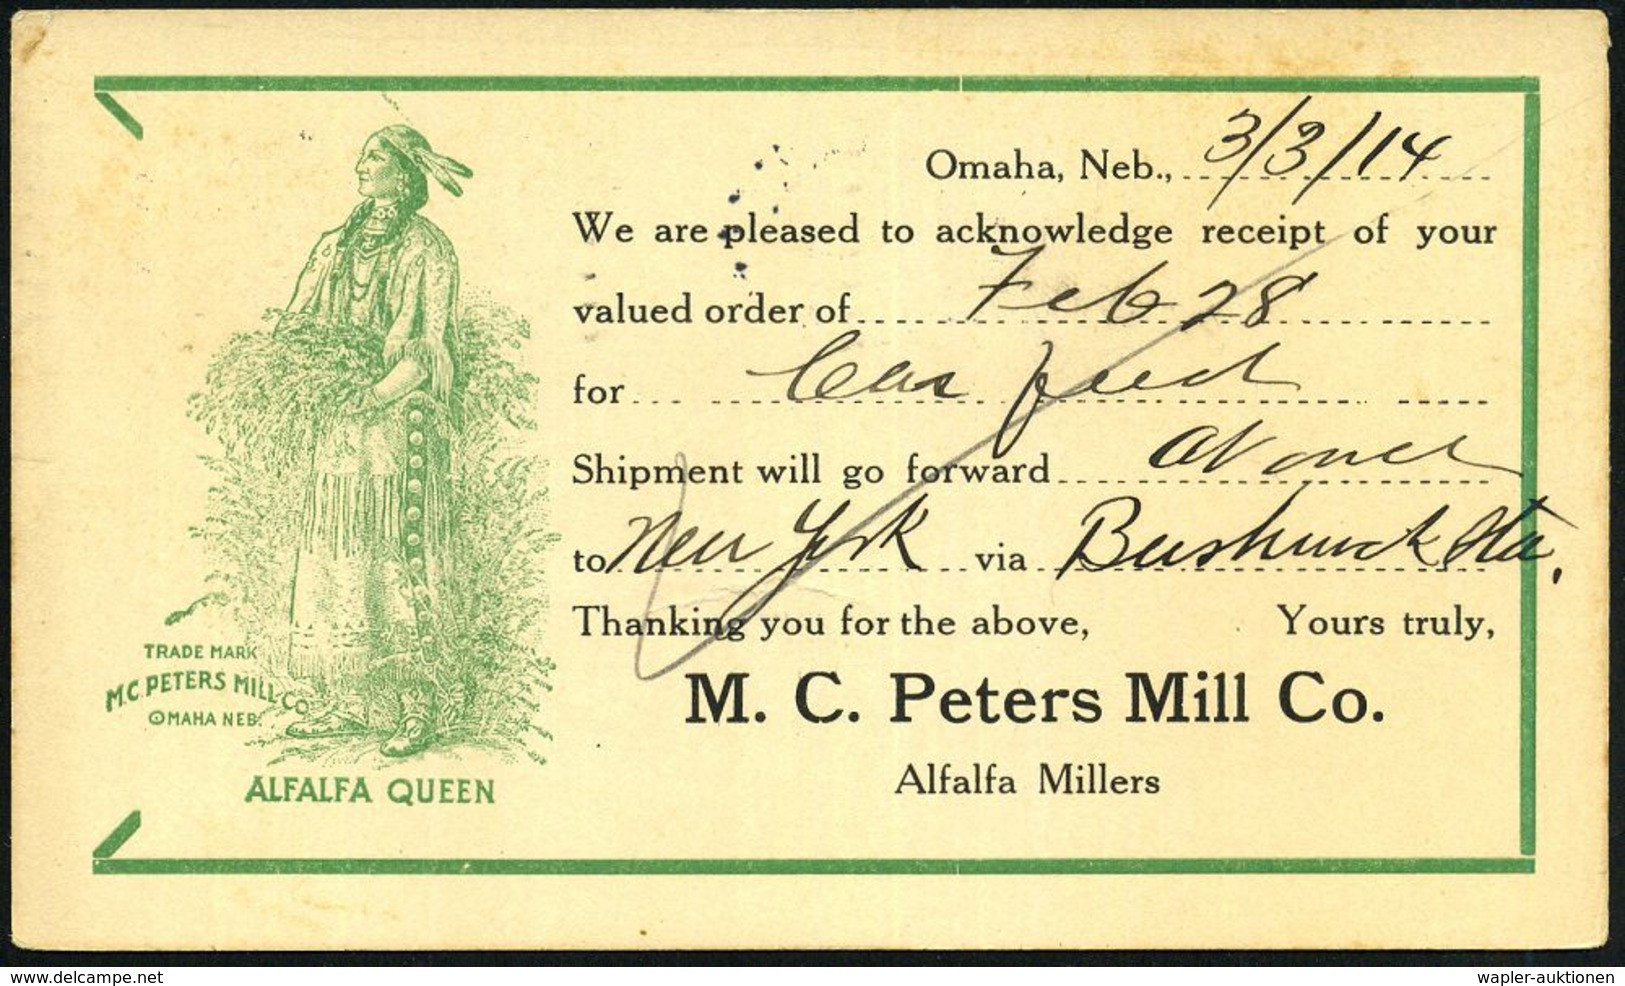 Omaha, Neb., 3/3/14
We are pleased to acknowledge receipt of your
valued order of Feb 28
for Car feed
Shipment will go forward at once
to New York via Bushwick Sta.
Thanking you for the above, Yours truly,
M. C. Peters Mill Co.
Alfalfa Millers
TRADE MARK
M.C. PETERS MILL CO
OMAHA NEB.
ALFALFA QUEEN
www.delcampe.net
wapler-auktionen